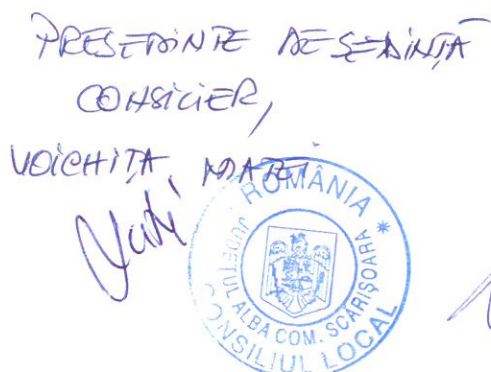 PREȘEDINTE DE ȘEDINȚĂ
CONSILIER,
VOICHIȚA MATEI
ROMÂNIA *
JUDEȚUL ALBA COM. SCĂRIȘOARA
CONSILIUL LOCAL